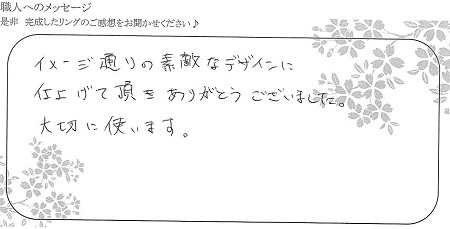 職人へのメッセージ
是非 完成したリングのご感想をお聞かせください♪
イメージ通りの素敵なデザインに
仕上げて頂きありがとうございました。
大切に使います。